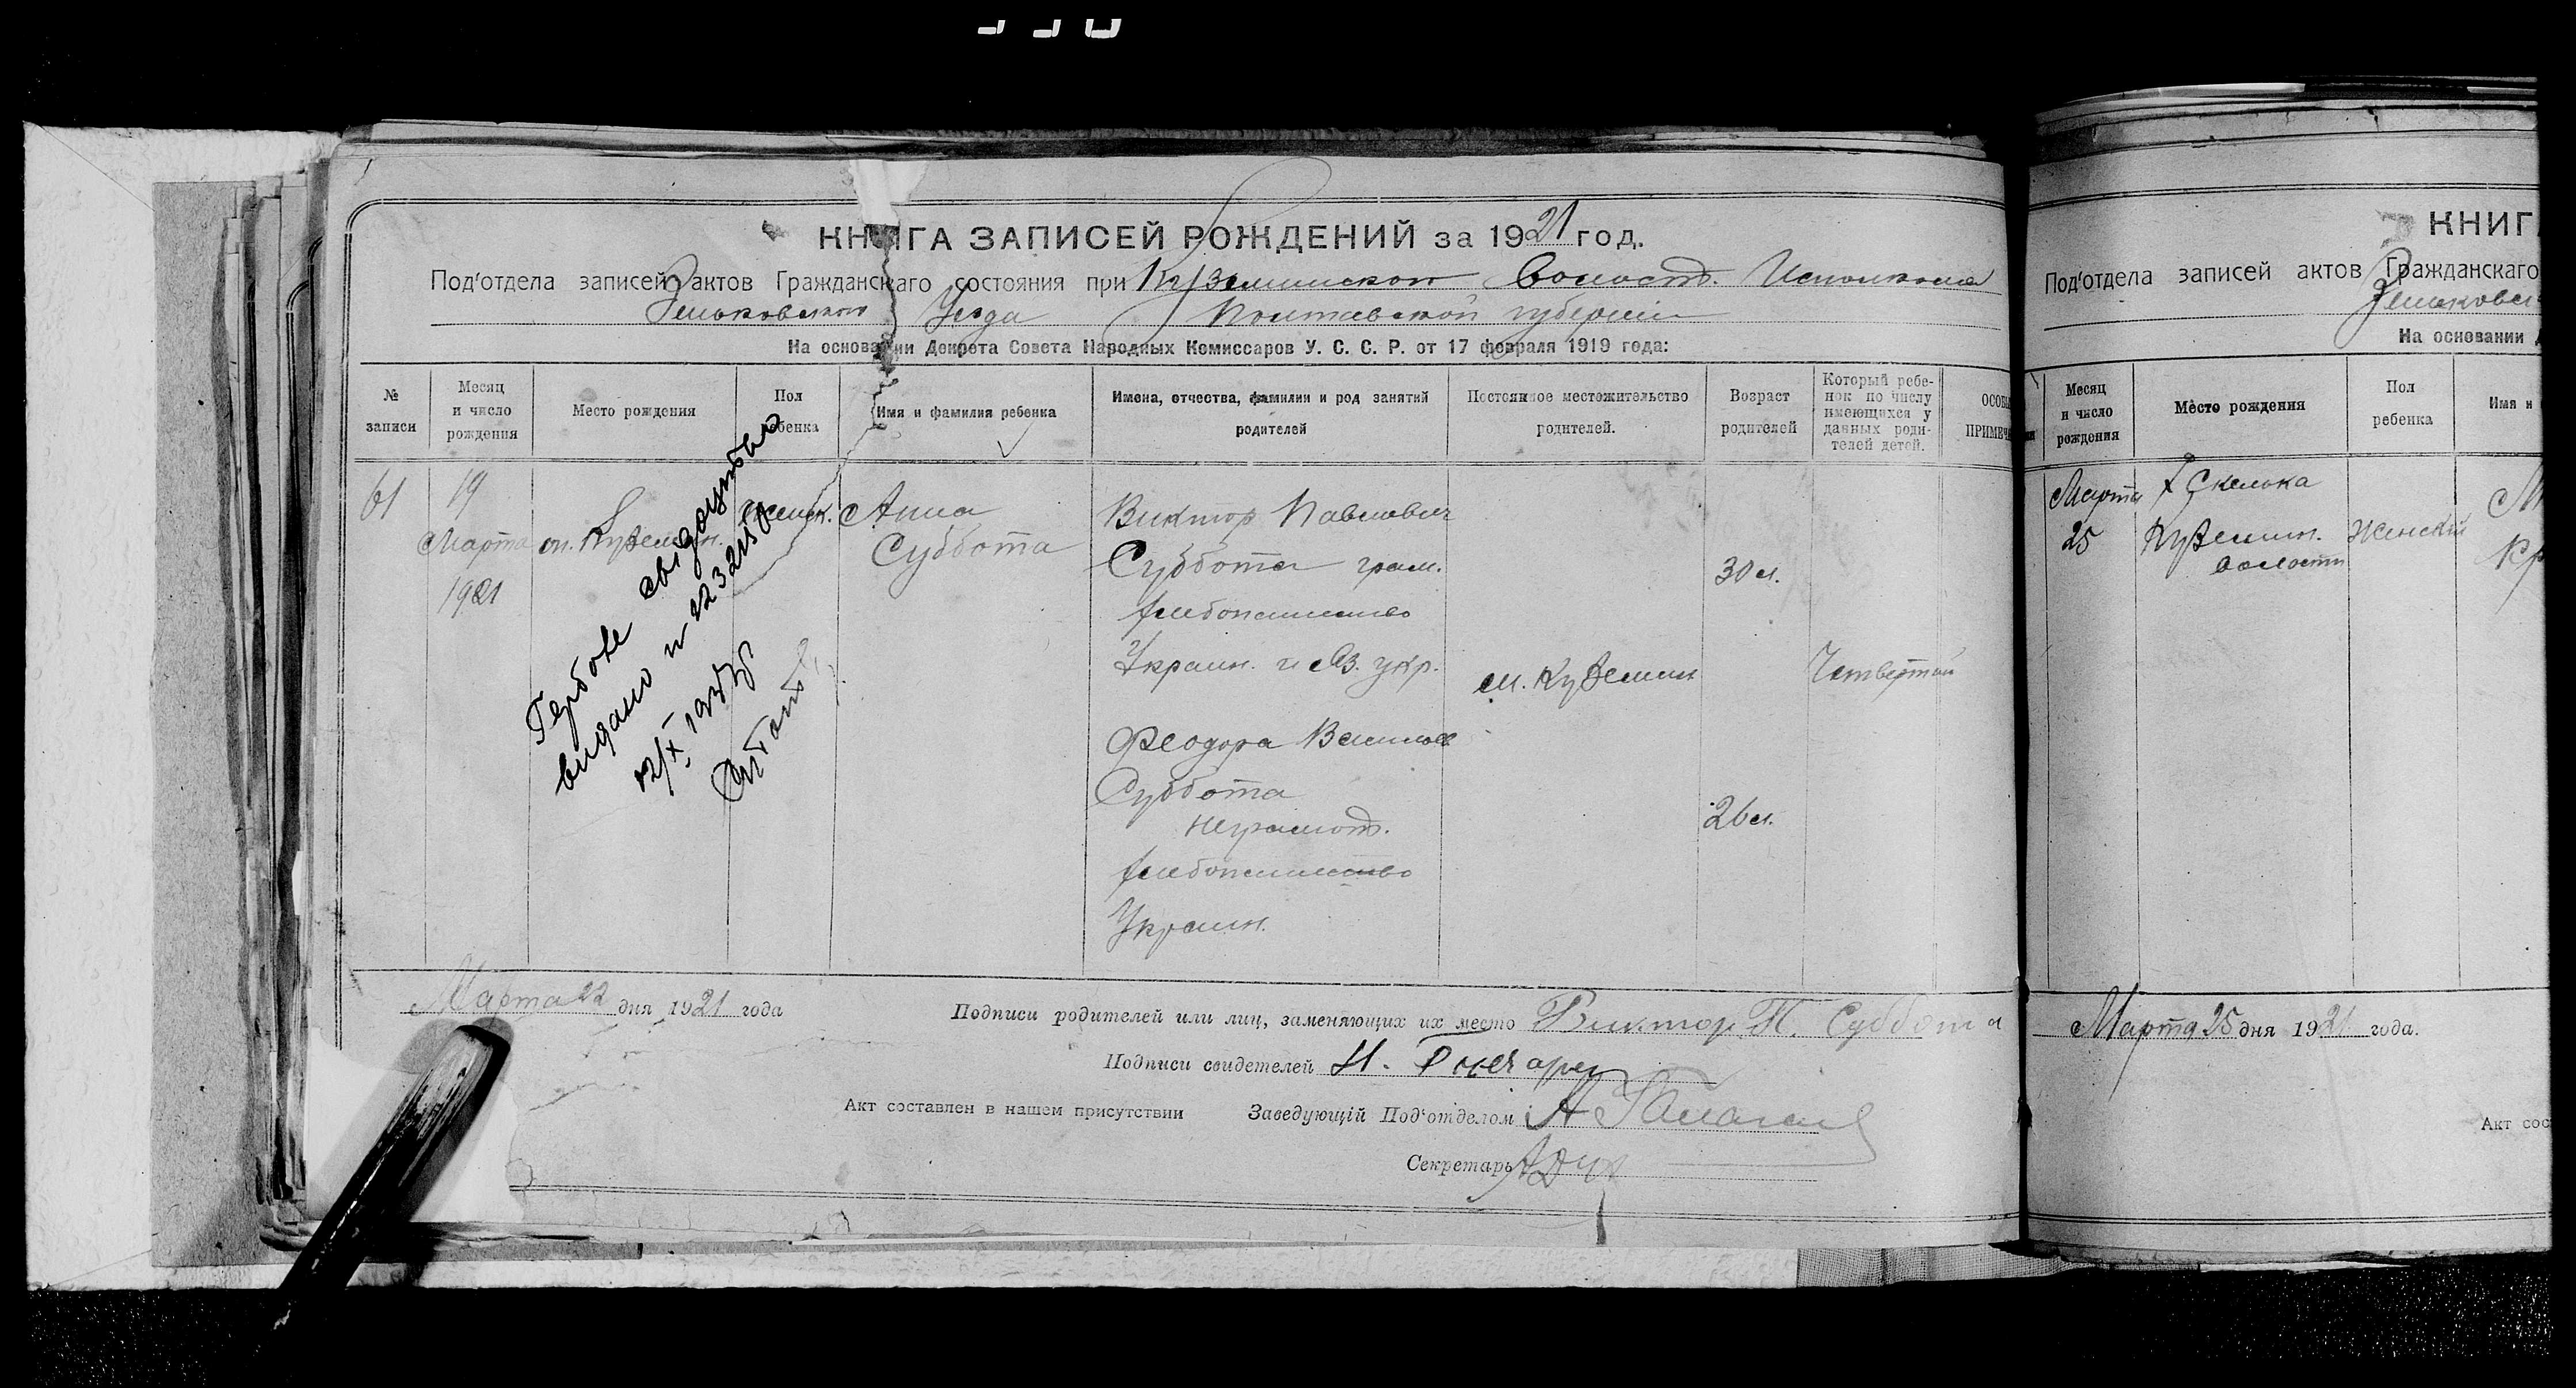 КНИГА ЗАПИСЕЙ РОЖДЕНИЙ за 1921 год.
Под'отдела записей актов Гражданскаго состояния при Куземинском Волост. Исполкома
Зеньковского Уезда Полтавской губернии
На основании Декрета Совета Народных Комиссаров У. С. С. Р. от 17 февраля 1919 года:
№ записи
Месяц и число рождения
Место рождения
Пол ребенка
Имя и фамилия ребенка
Имена, отчества, фамилии и род занятий родителей
Постоянное местожительство родителей.
Возраст родителей
Который ребенок по числу имеющихся у данных родителей детей.
61
19
Марта
1921
м. Куземин.
женск.
Анна
Суббота
Виктор Павлович
Суббота грам.
хлебопашество
Украин. и яз. укр.
Феодора Васильев
Суббота
неграмот.
хлебопашество
Украин.
м. Куземин
30 л.
26 л.
Четвертый
Гербове свідоцтво
видано
Марта 22 дня 1921 года
Подписи родителей или лиц, заменяющих их место Виктор П. Суббота
Подписи свидетелей И. Гончарен
Акт составлен в нашем присутствии Заведующій Под'отделом
Секретарь
КНИГ
Под'отдела записей актов Гражданскаго
Зеньковск
На основании
Месяц и число рождения
Место рождения
Пол ребенка
Имя и
Марта
25
х Скелька
Куземин.
волости
Женский
Кр
Марта 25 дня 1921 года.
Акт сос